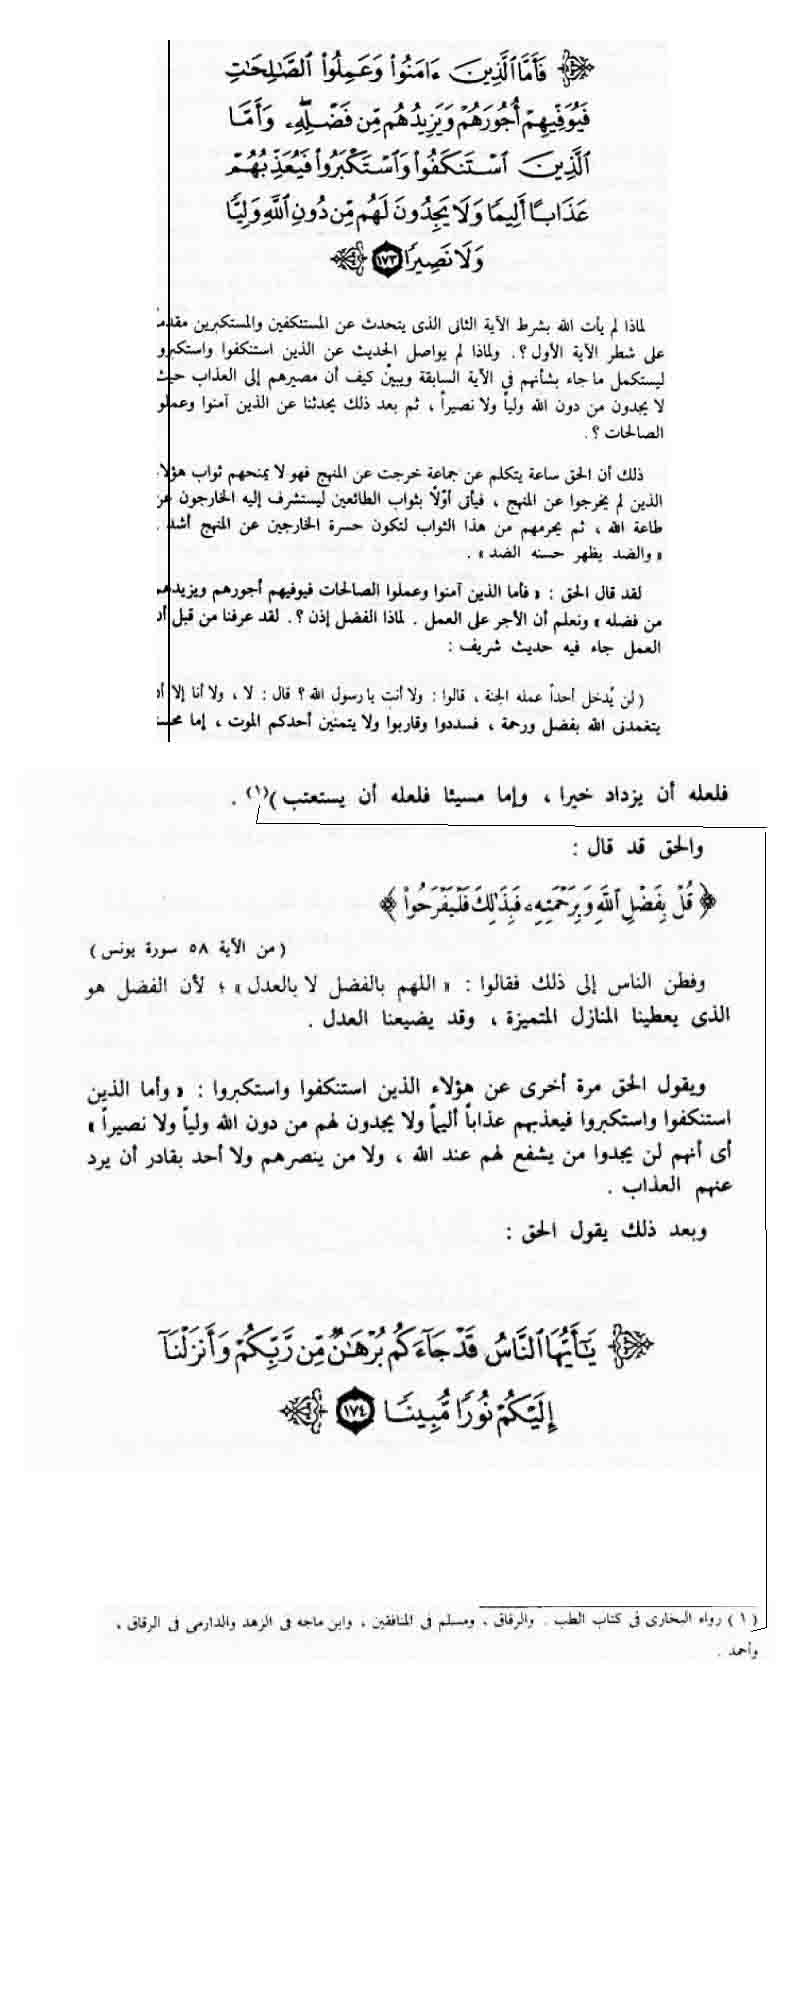 فَأَمَّا الَّذِينَ ءَامَنُوا۟ وَعَمِلُوا۟ الصَّٰلِحَٰتِ
فَيُوَفِّيهِمْ أُجُورَهُمْ وَيَزِيدُهُم مِّن فَضْلِهِۦ وَأَمَّا
الَّذِينَ اسْتَنكَفُوا۟ وَاسْتَكْبَرُوا۟ فَيُعَذِّبُهُمْ
عَذَابًا أَلِيمًا وَلَا يَجِدُونَ لَهُم مِّن دُونِ اللَّهِ وَلِيًّا
وَلَا نَصِيرًا ١٧٣
لماذا لم يأت الله بشرط الآية الثانى الذى يتحدث عن المستنكفين والمستكبرين مقدماً
على شطر الآية الأول ؟ . ولماذا لم يواصل الحديث عن الذين استنكفوا واستكبروا
ليستكمل ما جاء بشأنهم فى الآية السابقة ويبيّن كيف أن مصيرهم إلى العذاب حيث
لا يجدون من دون الله ولياً ولا نصيراً ، ثم بعد ذلك يحدثنا عن الذين آمنوا وعملوا
الصالحات ؟ .
ذلك أن الحق ساعة يتكلم عن جماعة خرجت عن المنهج فهو لا يمنحهم ثواب هؤلاء
الذين لم يخرجوا عن المنهج ، فيأتى أوّلاً بثواب الطائعين ليستشرف إليه الخارجون عن
طاعة الله ، ثم يحرمهم من هذا الثواب لتكون حسرة الخارجين عن المنهج أشد .
« والضد يظهر حسنه الضد » .
لقد قال الحق : « فأما الذين آمنوا وعملوا الصالحات فيوفيهم أجورهم ويزيدهم
من فضله » ونعلم أن الأجر على العمل . لماذا الفضل إذن ؟ . لقد عرفنا من قبل أن
العمل جاء فيه حديث شريف :
( لن يُدخل أحداً عمله الجنة ، قالوا : ولا أنت يا رسول الله ؟ قال : لا ، ولا أنا إلا أن
يتغمدنى الله بفضل ورحمة ، فسددوا وقاربوا ولا يتمنين أحدكم الموت ، إما محسنا
فلعله أن يزداد خيرا ، وإما مسيئا فلعله أن يستعتب )(١) .
والحق قد قال :
﴿ قُلْ بِفَضْلِ اللَّهِ وَبِرَحْمَتِهِۦ فَبِذَٰلِكَ فَلْيَفْرَحُوا۟ ﴾
( من الآية ٥٨ سورة يونس )
وفطن الناس إلى ذلك فقالوا : « اللهم بالفضل لا بالعدل » ؛ لأن الفضل هو
الذى يعطينا المنازل المتميزة ، وقد يضيعنا العدل .
ويقول الحق مرة أخرى عن هؤلاء الذين استنكفوا واستكبروا : « وأما الذين
استنكفوا واستكبروا فيعذبهم عذاباً أليماً ولا يجدون لهم من دون الله ولياً ولا نصيراً »
أى أنهم لن يجدوا من يشفع لهم عند الله ، ولا من ينصرهم ولا أحد بقادر أن يرد
عنهم العذاب .
وبعد ذلك يقول الحق :
يَٰٓأَيُّهَا النَّاسُ قَدْ جَآءَكُم بُرْهَٰنٌ مِّن رَّبِّكُمْ وَأَنزَلْنَآ
إِلَيْكُمْ نُورًا مُّبِينًا ١٧٤
( ١ ) رواه البخارى فى كتاب الطب . والرقاق ، ومسلم فى المنافقين ، وابن ماجه فى الزهد والدارمى فى الرقاق ،
وأحمد .